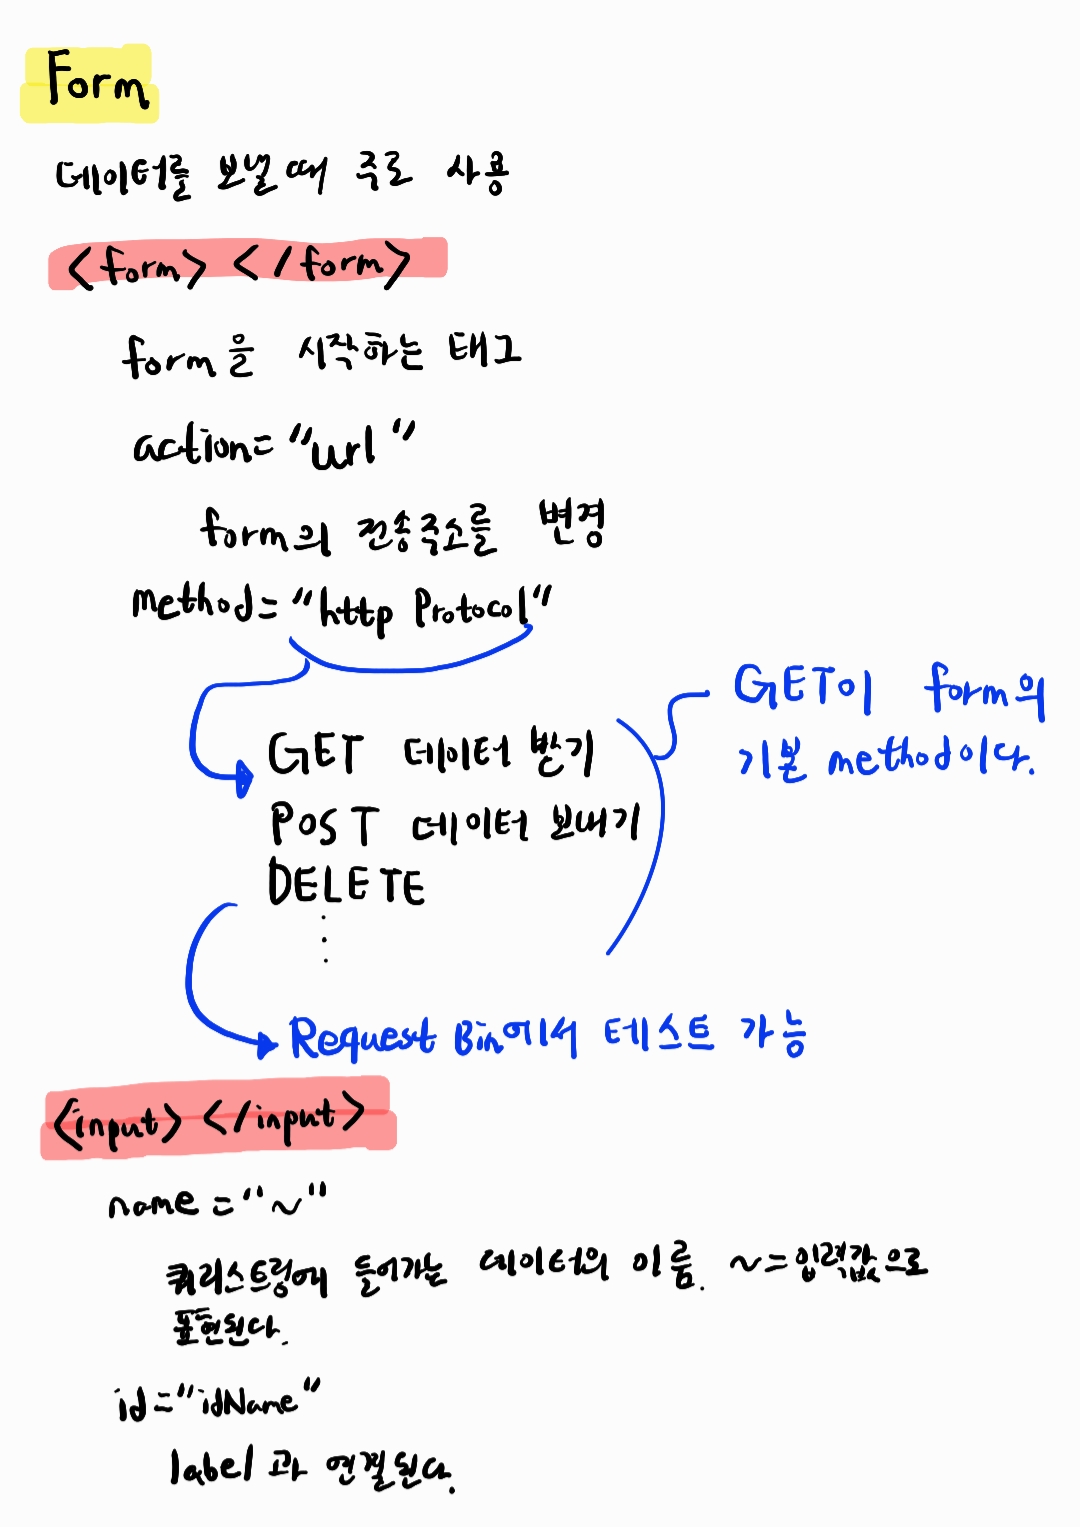 Form
데이터를 보낼 때 주로 사용
<form> </form>
form을 시작하는 태그
action="url"
form의 전송주소를 변경
method="http Protocol"
GET이 form의
기본 method이다.
GET 데이터 받기
POST 데이터 보내기
DELETE
⋮
Request Bin에서 테스트 가능
<input> </input>
name="~"
쿼리스트링에 들어가는 데이터의 이름. ~=입력값으로
표현된다.
id="idName"
label과 연결된다.